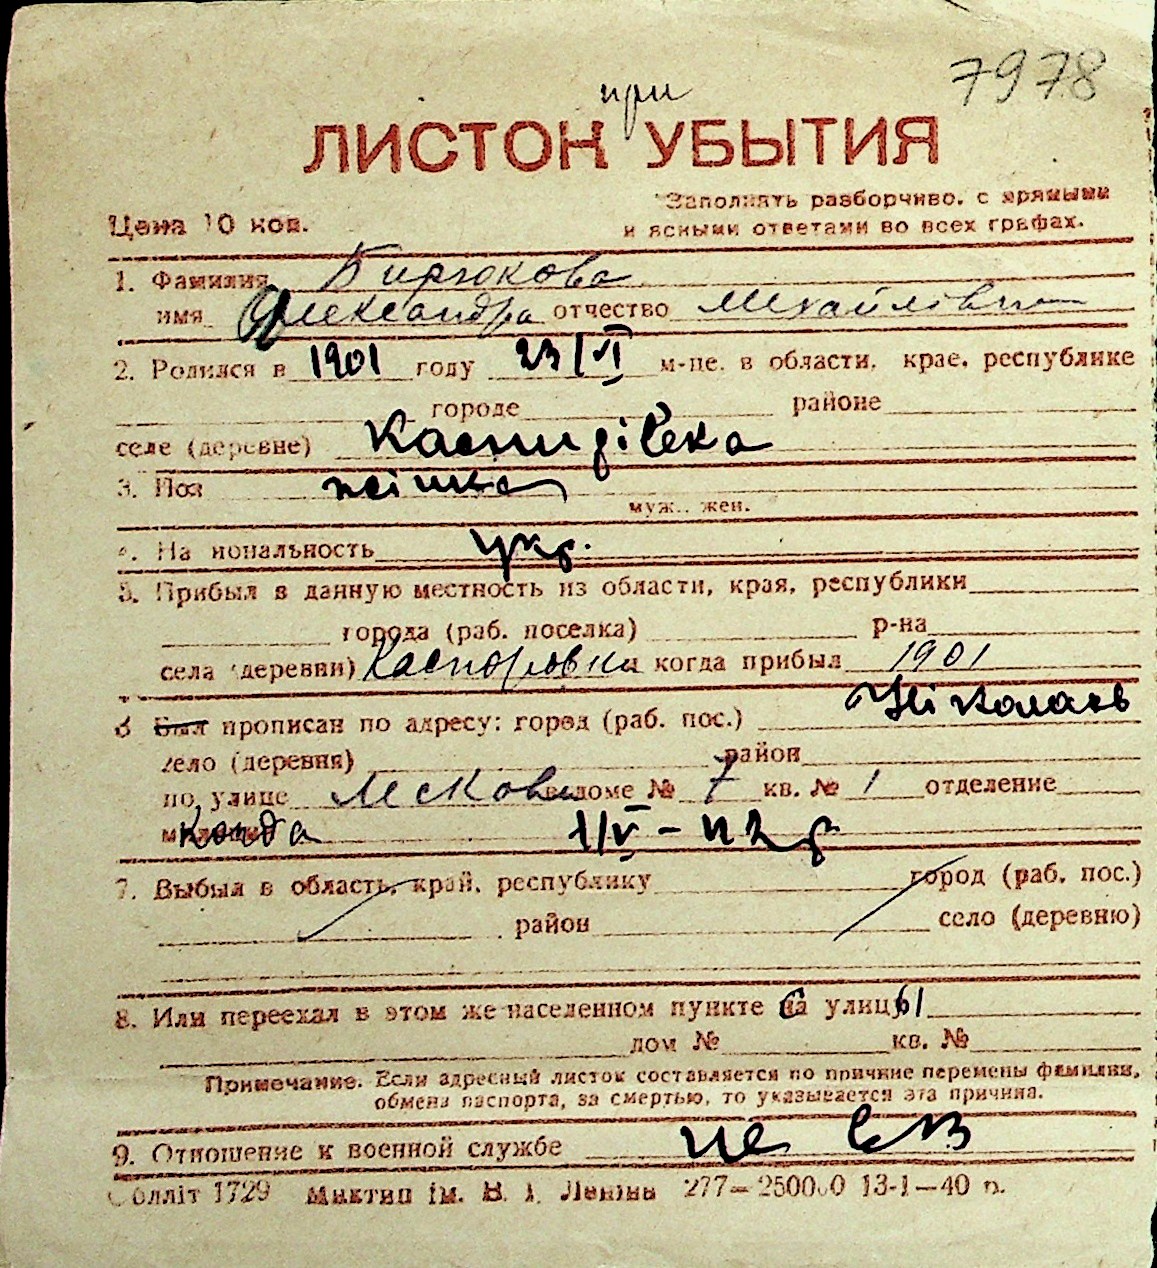 7978
при
ЛИСТОК УБЫТИЯ
Цена 10 коп.
Заполнять разборчиво, с прямыми
и ясными ответами во всех графах.
1. Фамилия Бирюкова
имя Александра отчество Михайлівна
2. Родился в 1901 году 23/VI м-це, в области, крае, республике
городе районе
селе (деревне)
3. Пол жінка
муж., жен.
4. Национальность укр.
5. Прибыл в данную местность из области, края, республики
города (раб. поселка) р-на
села (деревни) Каспоровки когда прибыл 1901
6 Был прописан по адресу: город (раб. пос.) Ніколаєв
село (деревня) район
по улице в доме № 7 кв. № 1 отделение
когда 1/V-42 г
7. Выбыл в область, край, республику город (раб. пос.)
район село (деревню)
8. Или переехал в этом же населенном пункте с улицы
дом № кв. №
Примечание. Если адресный листок составляется по причине перемены фамилии,
обмена паспорта, за смертью, то указывается эта причина.
9. Отношение к военной службе не
Облліт 1729 Миктип ім. В. І. Леніна 277—250000 13-1—40 р.